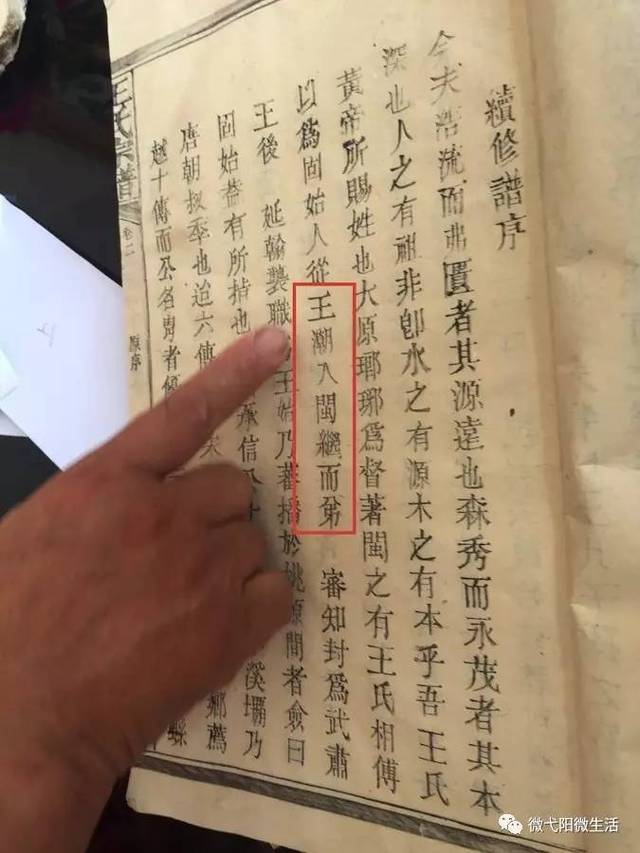 續修譜序
今夫浩流而弗匱者其源遠也森秀而永茂者其本
深也人之有祖非卽水之有源木之有本乎吾王氏
黃帝所賜姓也大原瑯琊為督著閩之有王氏相傳
以為固始人從王潮入閩繼而弟 審知封為武肅
王後 延翰襲職 王始乃蕃播於桃源間者僉曰
固始葢有所据也 承信公 溪壩乃
唐朝叔季也迨六傳 鄉薦
越十傳而公名胄者 縣
王氏宗譜
卷二
原序
微弋阳微生活